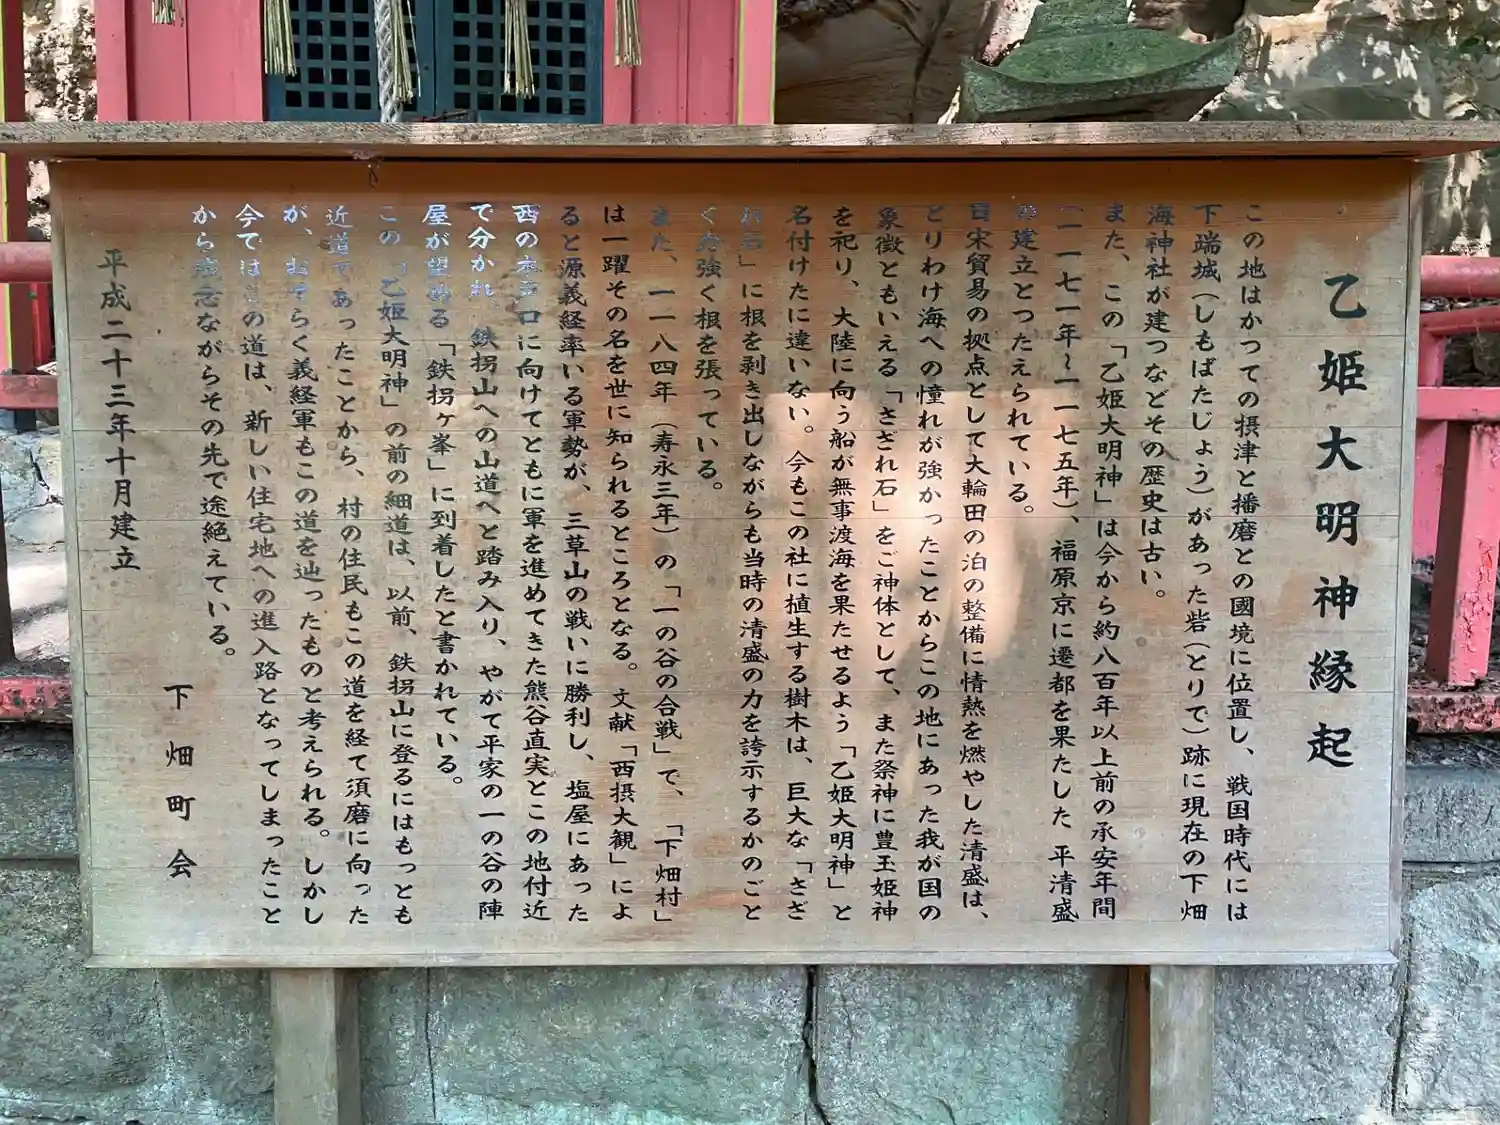 乙姫大明神縁起
この地はかつての摂津と播磨との國境に位置し、戦国時代には
下端城（しもばたじょう）があった砦（とりで）跡に現在の下畑
海神社が建つなどその歴史は古い。
また、この「乙姫大明神」は今から約八百年以上前の承安年間
（一一七一年～一一七五年）、福原京に遷都を果たした 平清盛
の建立とつたえられている。
日宋貿易の拠点として大輪田の泊の整備に情熱を燃やした清盛は、
とりわけ海への憧れが強かったことからこの地にあった我が国の
象徴ともいえる「さざれ石」をご神体として、また祭神に豊玉姫神
を祀り、大陸に向う船が無事渡海を果たせるよう「乙姫大明神」と
名付けたに違いない。今もこの社に植生する樹木は、巨大な「さざ
れ石」に根を剥き出しながらも当時の清盛の力を誇示するかのごと
く力強く根を張っている。
また、一一八四年（寿永三年）の「一の谷の合戦」で、「下畑村」
は一躍その名を世に知られるところとなる。文献「西摂大観」によ
ると源義経率いる軍勢が、三草山の戦いに勝利し、塩屋にあった
西の木戸口に向けてともに軍を進めてきた熊谷直実とこの地付近
で分かれ、鉄拐山への山道へと踏み入り、やがて平家の一の谷の陣
屋が望める「鉄拐ヶ峯」に到着したと書かれている。
この「乙姫大明神」の前の細道は、以前、鉄拐山に登るにはもっとも
近道であったことから、村の住民もこの道を経て須磨に向った
が、おそらく義経軍もこの道を辿ったものと考えられる。しかし
今ではこの道は、新しい住宅地への進入路となってしまったこと
から残念ながらその先で途絶えている。
下畑町会
平成二十三年十月建立